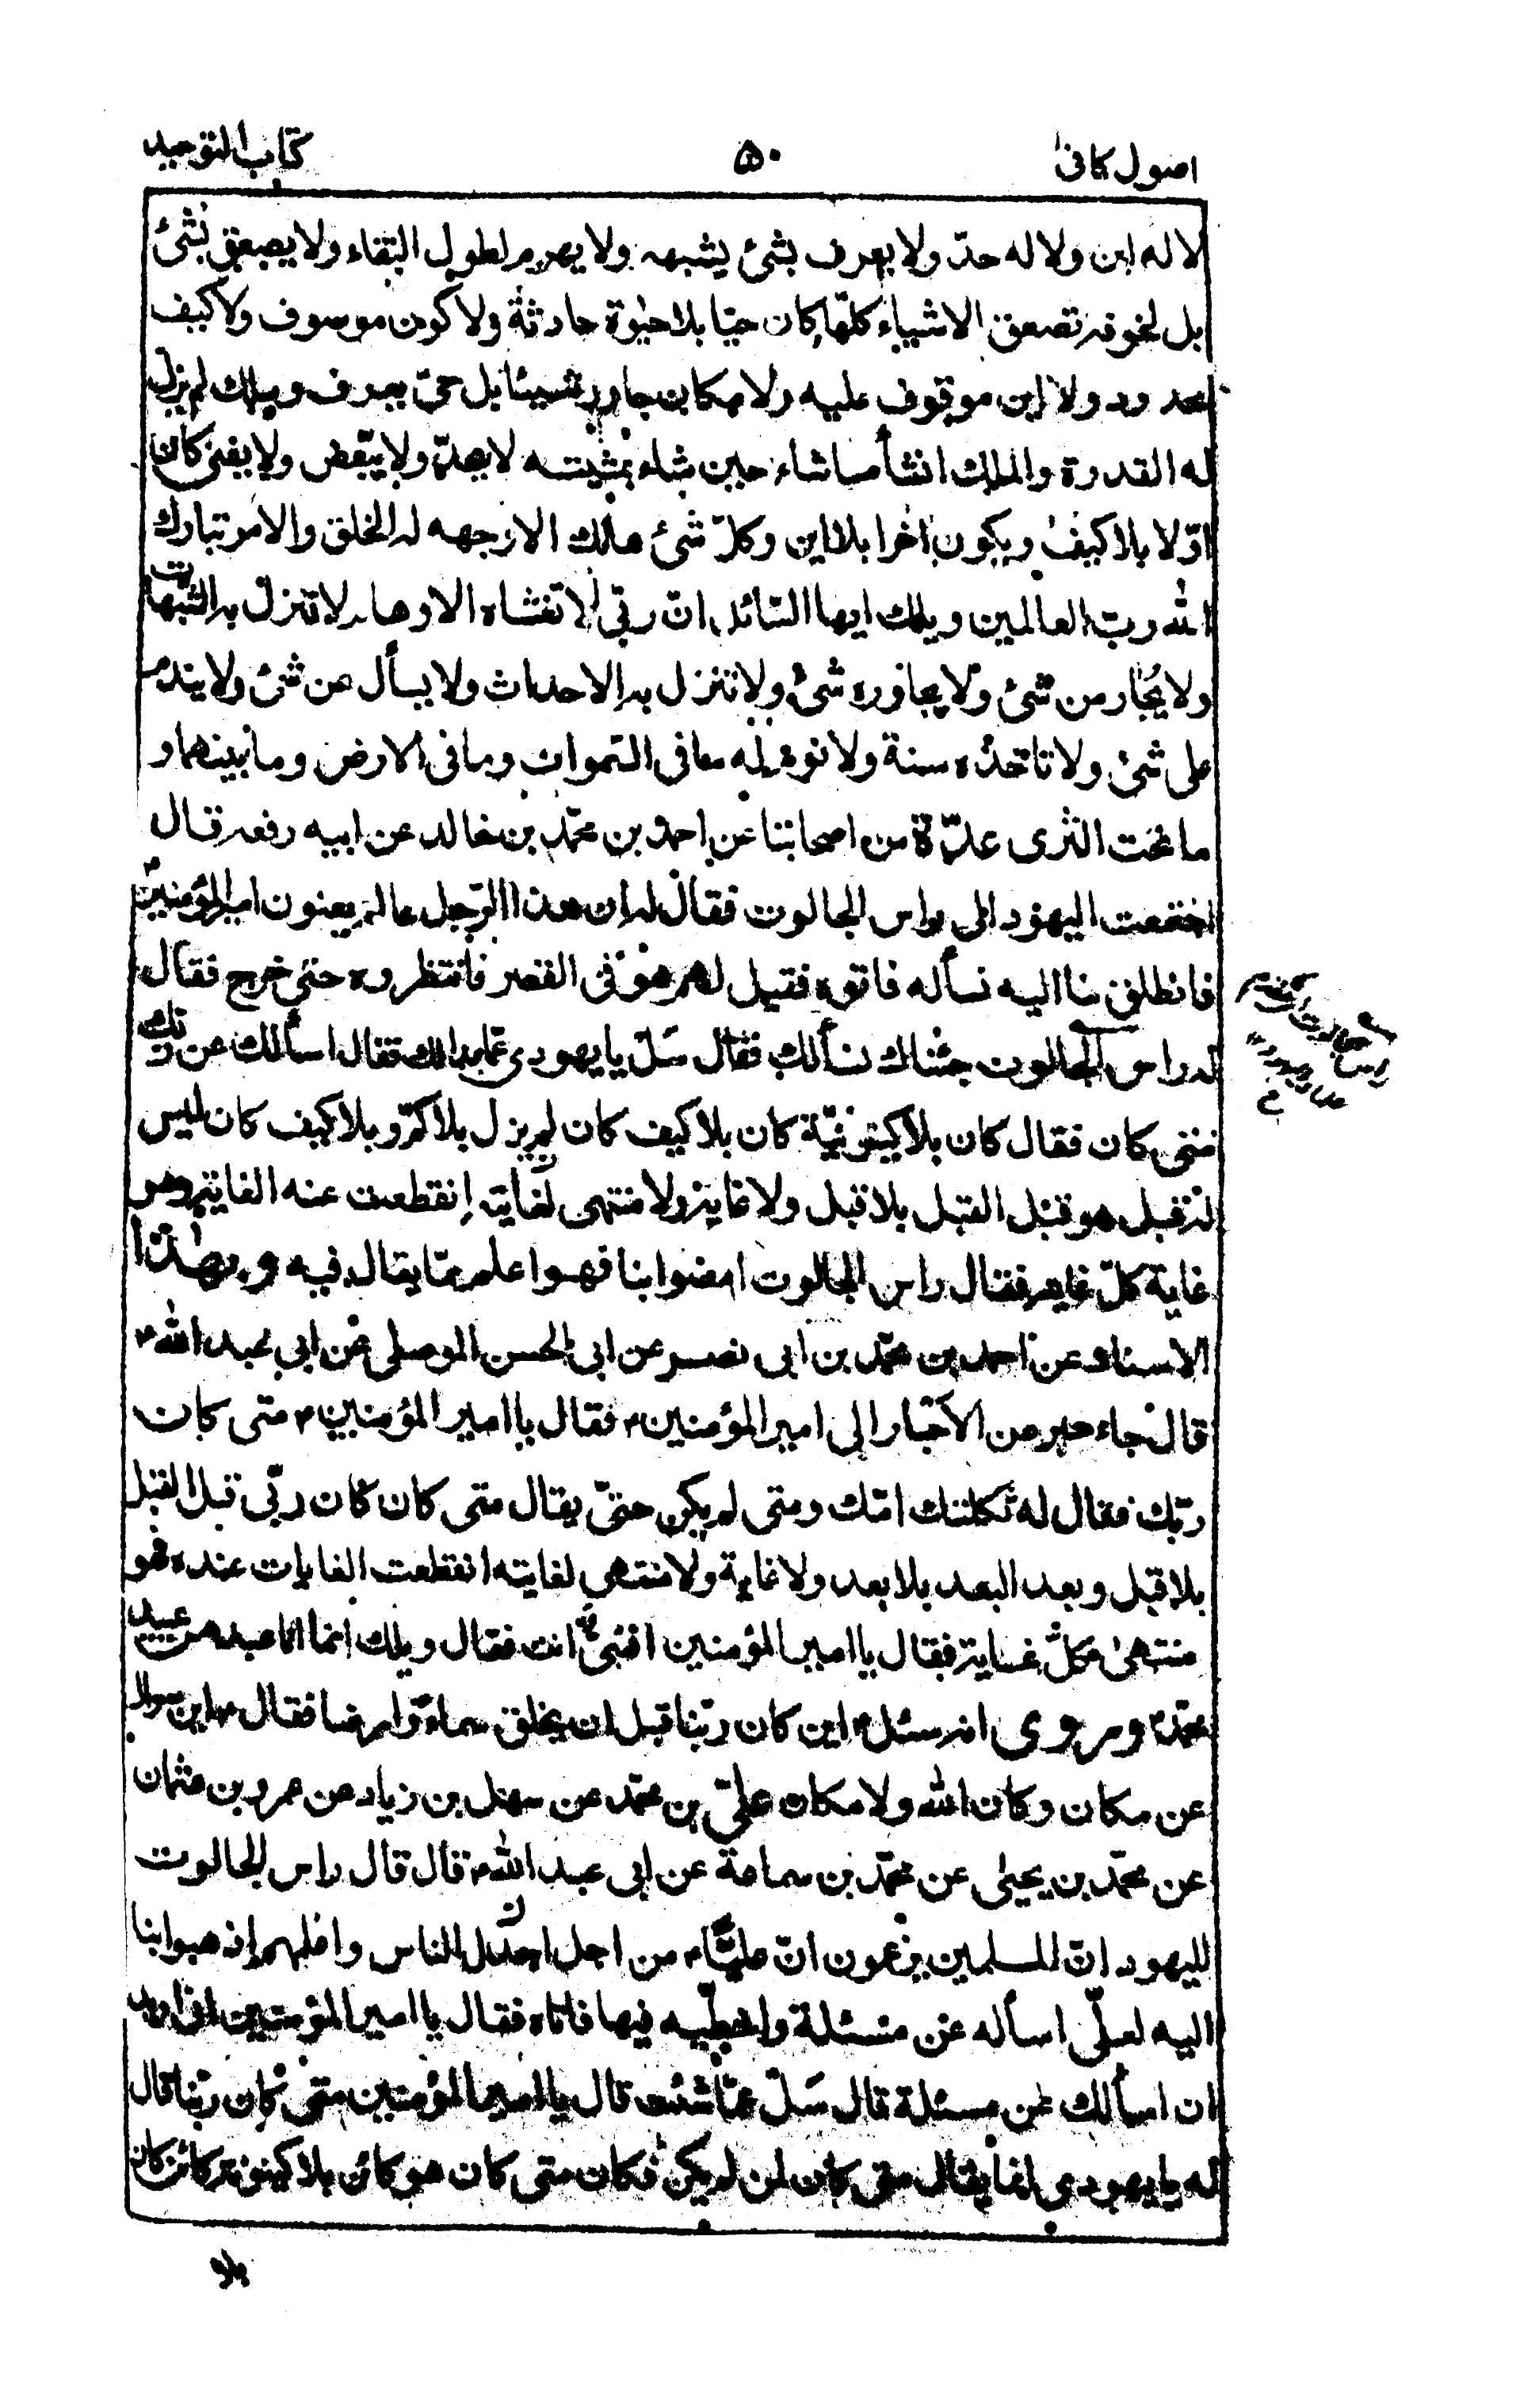 اصول كافى ۵۰ كتاب التوحيد
لا له اين ولا له حدّ ولا يعرف بشئ يشبهه ولا يهرم لطول البقاء ولا يصعق بشئ
بل لخوفه تصعق الاشياء كلّها كان حيّا بلا حيٰوة حادثة ولا كون موصوف ولا كيف
محدود ولا اين موقوف عليه ولا مكان جاور شيئا بل حىّ يعرف وملك لم يزل
له القدرة والملك انشأ ما شاء حين شاء بمشيته لا يحدّ ولا يبّعض ولا يفنى كان
اوّلا بلا كيف ويكون اٰخرا بلا اين وكلّ شئ هالك الا وجهه له الخلق والامر تبارك
الله ربّ العالمين ويلك ايها السّائل انّ ربّى لا تغشاه الاوهام لا تنزل به الشبهات
ولا يُجار من شئ ولا يجاوره شئ ولا تنزل به الاحداث ولا يسأل عن شئ ولا يندم
على شئ ولا تاخذه سنة ولا نوم له ما فى السّموات وما فى الارض وما بينهما و
ما تحت الثرى عدّة من اصحابنا عن احمد بن محمّد بن خالد عن ابيه رفعه قال
اجتمعت اليهود الى راس الجالوت فقال له ان هذا الرّجل عالم يعنون امير المؤمنين؏
فانطلق بنا اليه نسأله فاتوه فقيل لهم هو فى القصر فانتظروه حتى خرج فقال
له راس الجالوت جئناك نسألك فقال سَلْ يا يهودى عمّا بدا لك فقال اسألك عن ربّك
متى كان فقال كان بلا كينونيّة كان بلا كيف كان لم يزل بلا كمّ وبلا كيف كان ليس
له قبل هو قبل القبل بلا قبل ولا غاية ولا منتهى لغايته انقطعت عنه الغاية وهو
غاية كلّ غاية فقال راس الجالوت امضوا بنا فهو اعلم ممّا يقال فيه وبهٰذا
الاسناد عن احمد بن محمّد بن ابى نصر عن ابى الحسن الموصلى عن ابى عبد الله؏
قال جاء حبر من الاحبار الى امير المؤمنين؏ فقال يا امير المؤمنين؏ متى كان
ربّك فقال له ثكلتك امّك ومتى لم يكن حتىّ يقال متى كان كان ربّى قبل القبل
بلا قبل وبعد البعد بلا بعد ولا غاية ولا منتهى لغايته انقطعت الغايات عنده فهو
منتهىٰ كلّ غاية فقال يا امير المؤمنين افنبىّ انت فقال ويلك انما انا عبد من عبيد
محمّد؏ وروى انه سئل؏ اين كان ربّنا قبل ان يخلق سماءً وارضا فقال؏ اين سوال
عن مكان وكان الله ولا مكان علىّ بن محمّد عن سهل بن زياد عن عمرو بن عثمان
عن محمّد بن يحيىٰ عن محمّد بن سماعة عن ابى عبد الله؏ قال قال راس الجالوت
لليهود انّ المسلمين يزعمون انّ عليّا؏ من اجدل الناس واعلمهم اذهبوا بنا
اليه لعلّى اسأله عن مسئلة واخطّيه فيها فاتاه فقال يا امير المؤمنين انى اريد
ان اسألك عن مسئلة قال سَلْ عمّا شئت قال يا امير المؤمنين متى كان ربّنا قال
له يا يهودى انما يقال متى كان لمن لم يكن فكان متى كان هو كائن بلا كينونة كائن كان
بلا